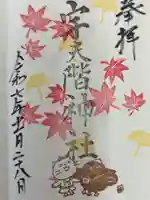 奉拝
弁天堦神社
令和七年十一月二十八日